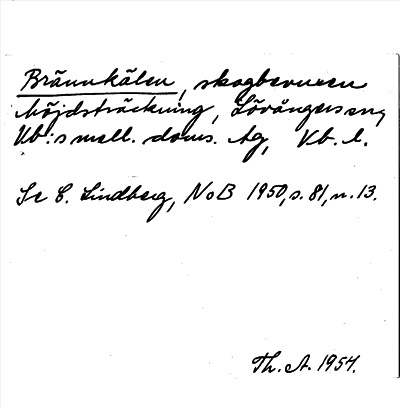 Brännkälen, skogbevuxen
höjdsträckning, Lövångers sn,
Vb:s mell. doms. tg, Vb. l.
Se C. Lindberg, NoB 1950, s. 81, n. 13.
Th. A. 1954.